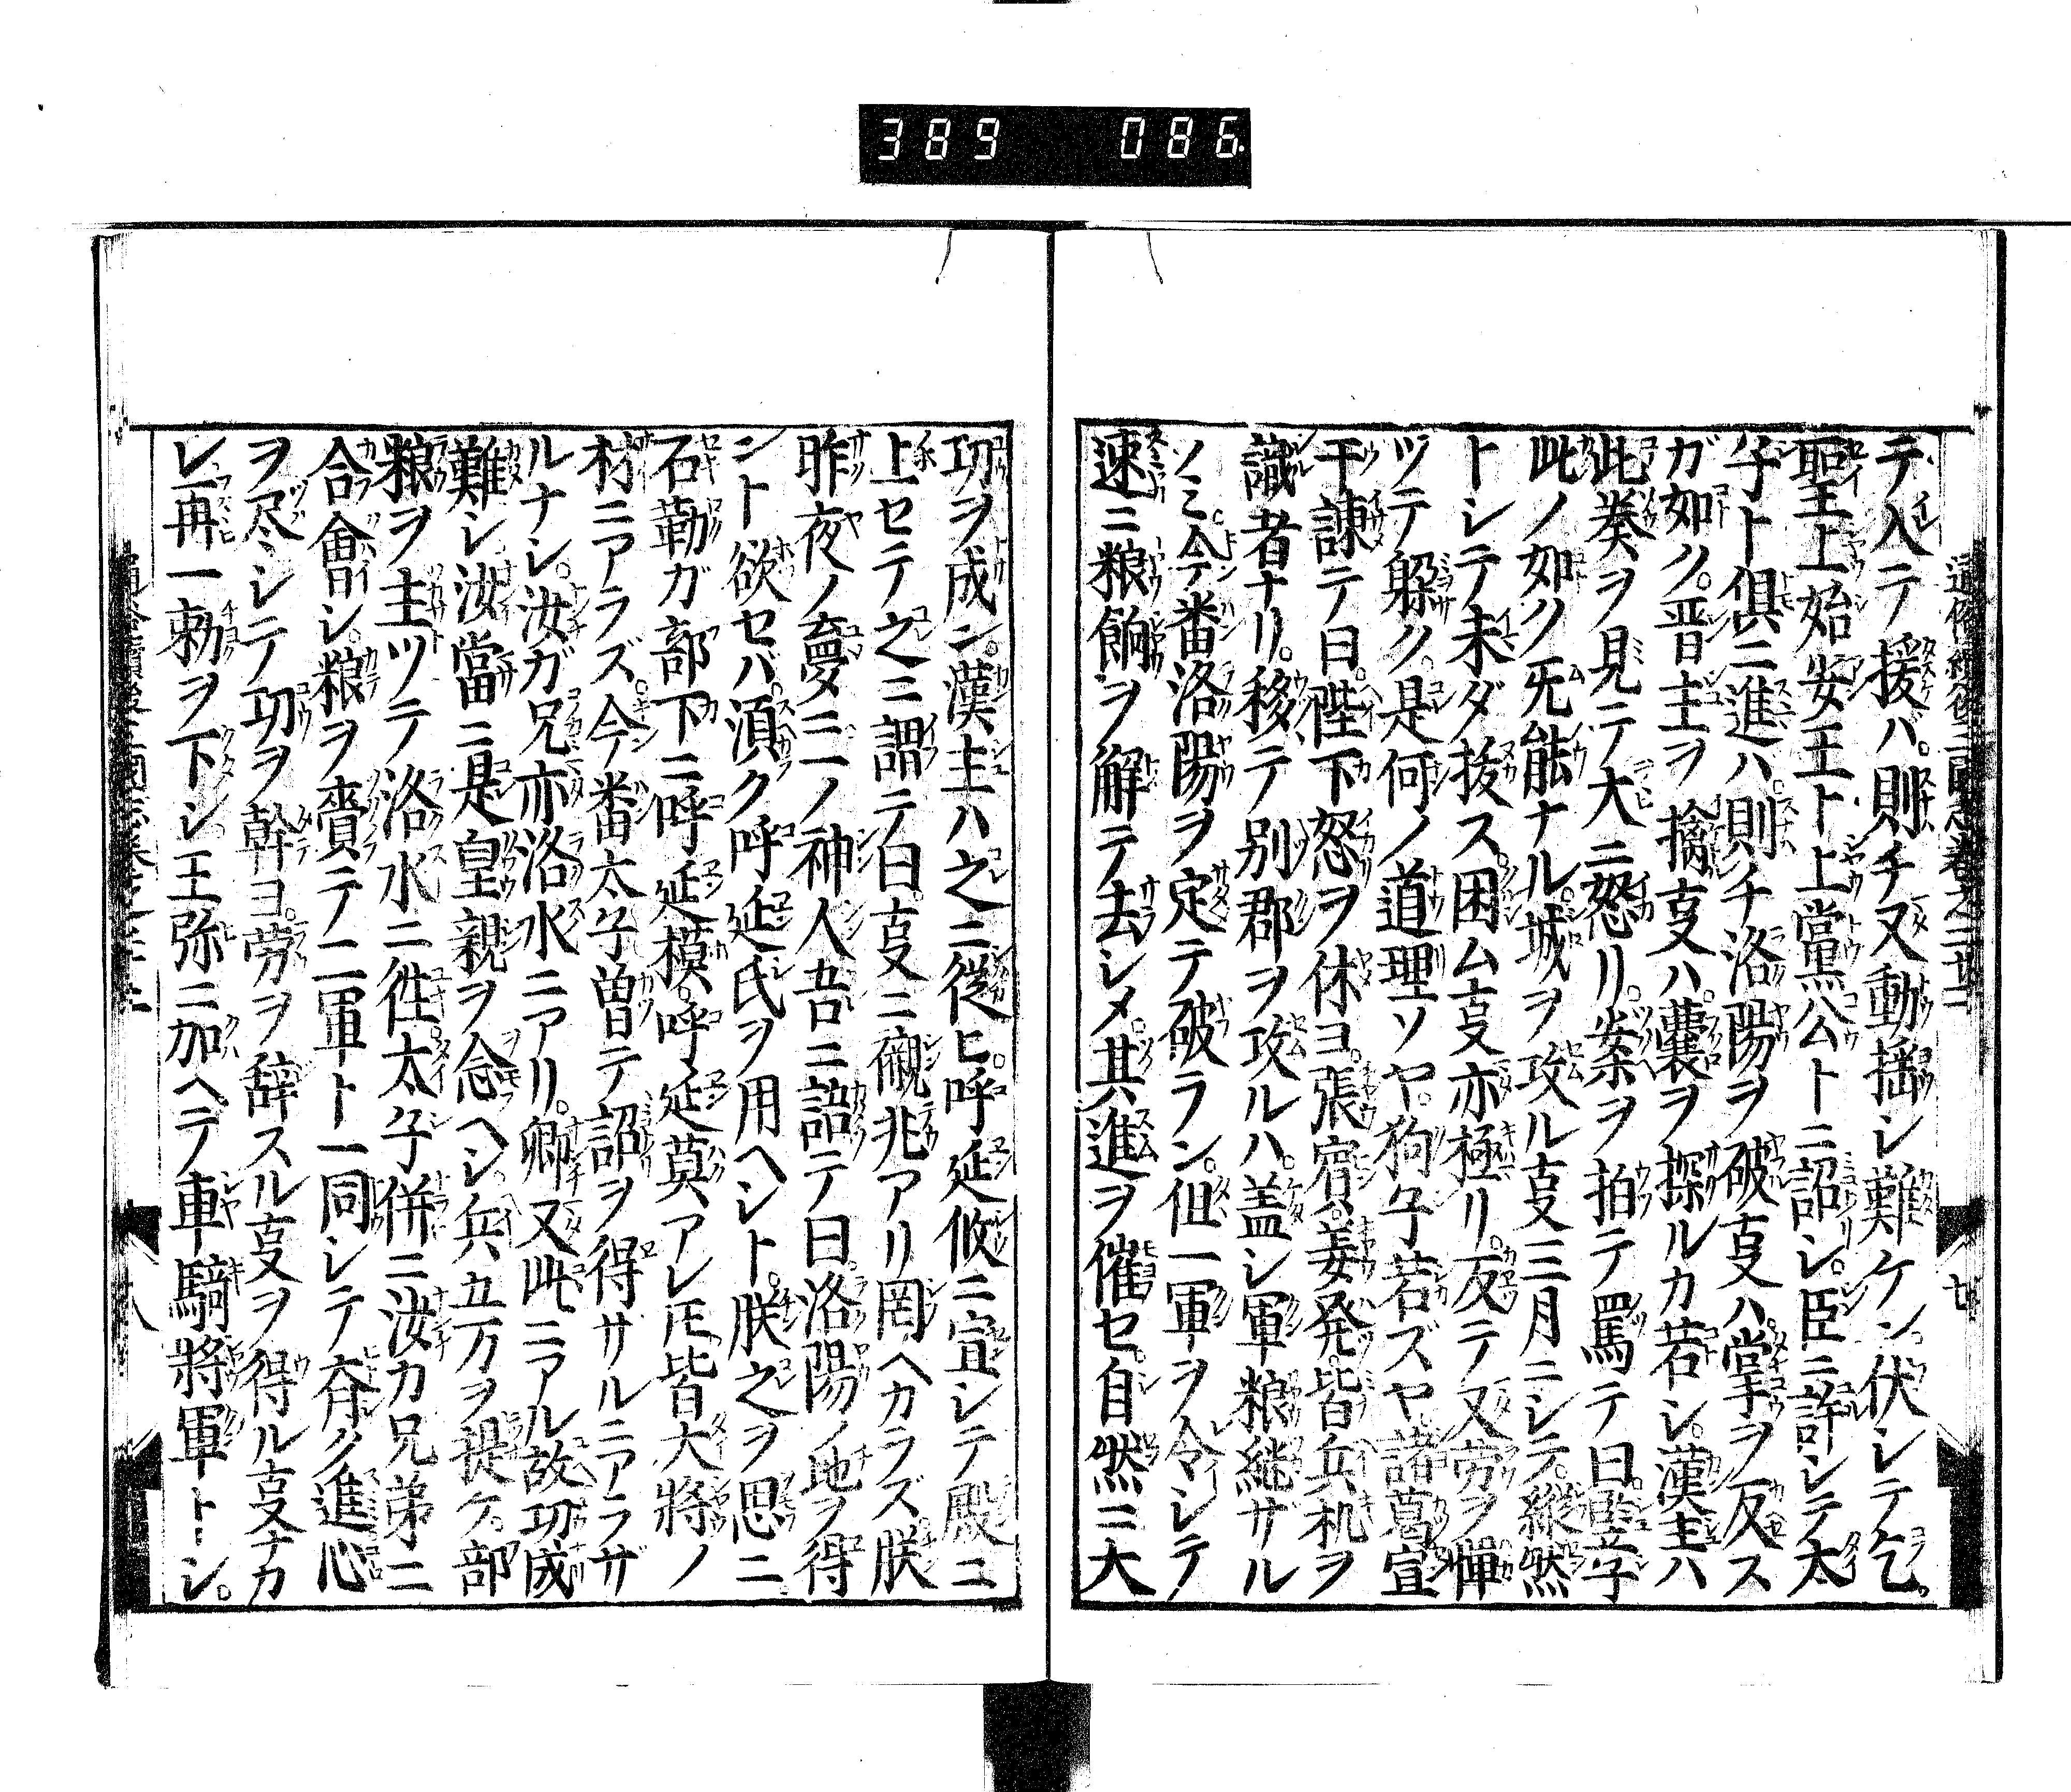 389 086
通俗續後三國志卷之二十二
テ入テ援バ。則チ又動揺シ難ケン。伏シテ乞フ。
聖上始安王ト上黨公トニ詔シ。臣ニ許シテ太
子ト俱ニ進ハ。則チ洛陽ヲ破夏ハ掌ヲ反ス
ガ如ク。晋主ヲ擒夏ハ。囊ヲ探ルカ若シ。漢主ハ
此奏ヲ見テ大ニ怒リ。案ヲ拍テ罵テ曰。豎子
此ノ如ク旡能ナル。城ヲ攻ル夏三月ニシテ。縱然
トシテ未ダ拔ス。困ム夏亦極リ。反テ又労ヲ憚
ツテ躱ク。是何ノ道理ソヤ。狗子若ズヤ諸葛宣
于諫テ曰。陛下怒ヲ休ヨ。張賓姜発。皆兵机ヲ
識者ナリ。移テ别郡ヲ攻ルハ。盖シ軍粮継ザル
ノミ。今番洛陽ヲ定テ破ラン。但一軍ヲ令シテ
速ニ粮餉ヲ解テ去シメ。其進ヲ催セ。自然ニ大
功ヲ成ン。漢主ハ之ニ從ヒ。呼延攸ニ宣シテ殿ニ
上セテ之ニ謂テ曰。夏ニ襯兆アリ罔ヘカラズ。朕
昨夜ノ夢ニ一ノ神人吾ニ語テ曰。洛陽ノ地ヲ得
ント欲セバ。須ク呼延氏ヲ用ヘシト。朕之ヲ思ニ
石勒ガ部下ニ呼延模。呼延莫アレ𪜈皆大將ノ
材ニアラズ。今番太子曽テ詔ヲ得サルニアラザ
ルナシ。汝ガ兄亦洛水ニアリ。卿又此ニアル故功成
難シ汝當ニ是皇親ヲ念ヘシ兵五万ヲ提ケ。部
粮ヲ主ツテ洛水ニ徃太子併ニ汝カ兄弟ニ
合會シ。粮ヲ賷テ二軍ト一同シテ斉ク進心
ヲ尽シテ功ヲ幹ヨ。労ヲ辞スル夏ヲ得ル夏ナカ
レ再一勅ヲ下シ王弥ニ加ヘテ車騎將軍トシ。